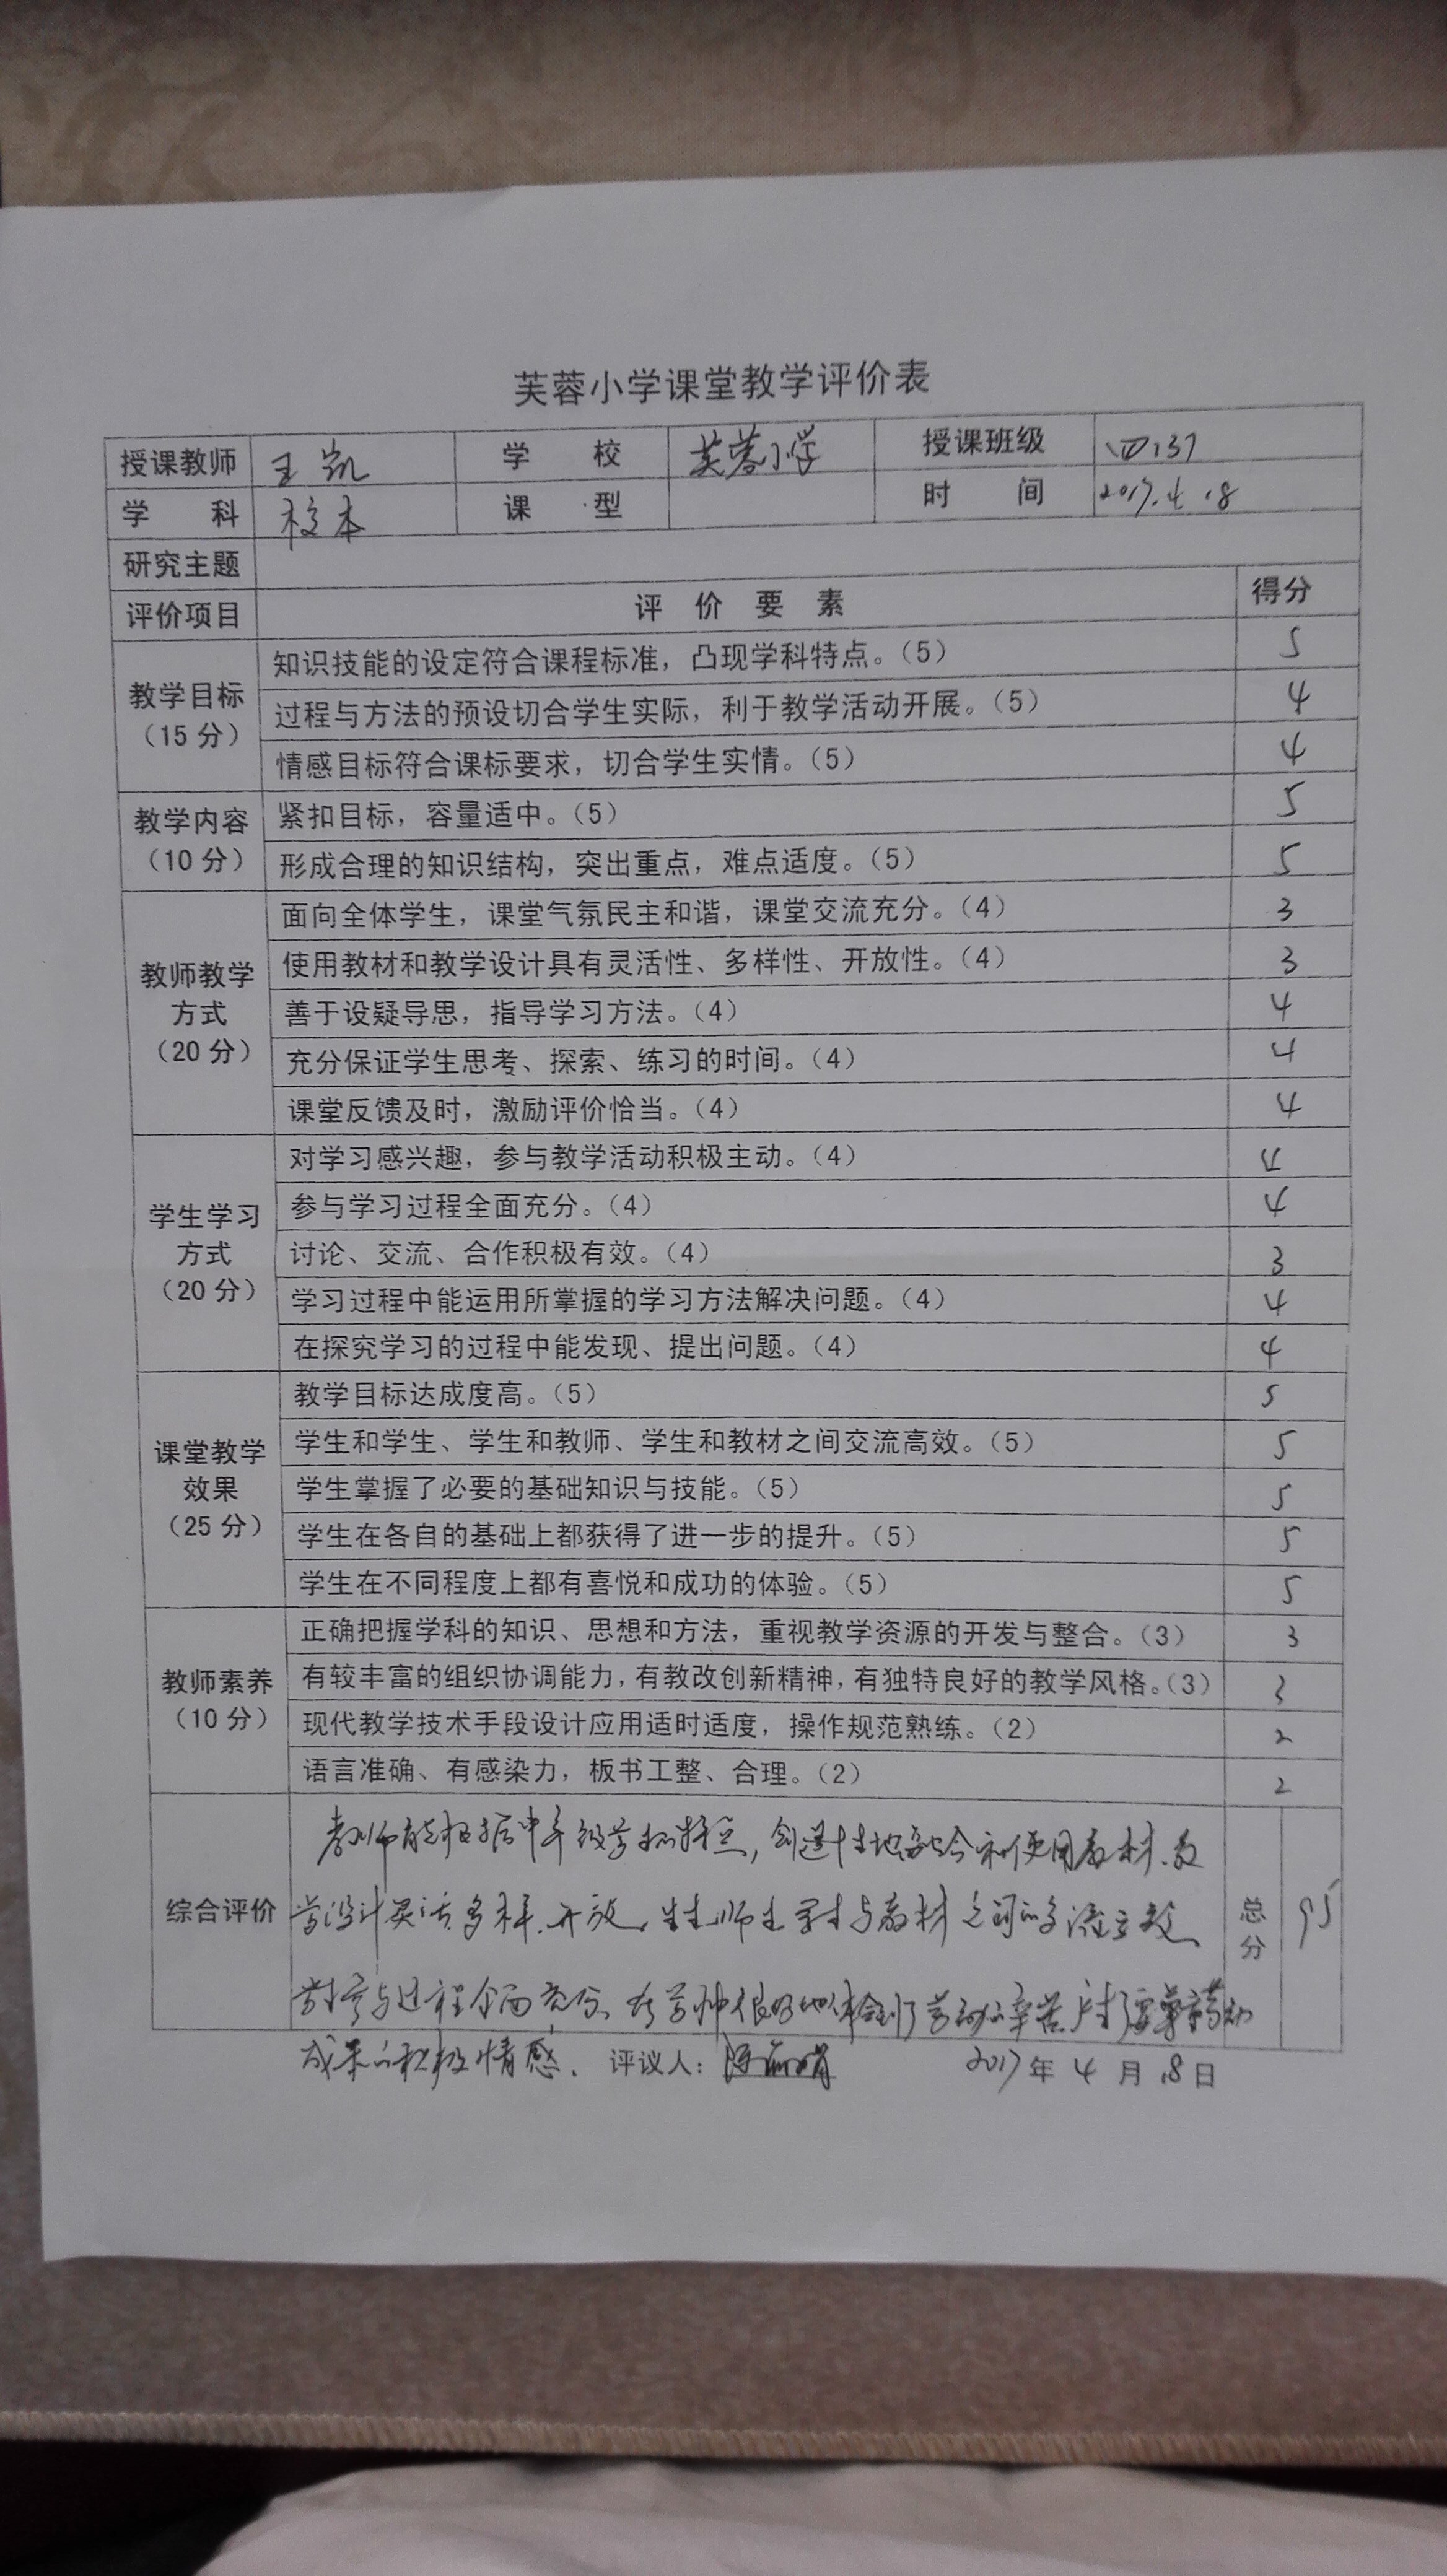 芙蓉小学课堂教学评价表
授课教师 王凯 学 校 芙蓉小学 授课班级 四137
学 科 校本 课 型 时 间 2017.4.18
研究主题
评价项目 评 价 要 素 得分
教学目标（15分）
知识技能的设定符合课程标准，凸现学科特点。（5） 5
过程与方法的预设切合学生实际，利于教学活动开展。（5） 4
情感目标符合课标要求，切合学生实情。（5） 4
教学内容（10分）
紧扣目标，容量适中。（5） 5
形成合理的知识结构，突出重点，难点适度。（5） 5
教师教学方式（20分）
面向全体学生，课堂气氛民主和谐，课堂交流充分。（4） 3
使用教材和教学设计具有灵活性、多样性、开放性。（4） 3
善于设疑导思，指导学习方法。（4） 4
充分保证学生思考、探索、练习的时间。（4） 4
课堂反馈及时，激励评价恰当。（4） 4
学生学习方式（20分）
对学习感兴趣，参与教学活动积极主动。（4） 4
参与学习过程全面充分。（4） 4
讨论、交流、合作积极有效。（4） 3
学习过程中能运用所掌握的学习方法解决问题。（4） 4
在探究学习的过程中能发现、提出问题。（4） 4
课堂教学效果（25分）
教学目标达成度高。（5） 5
学生和学生、学生和教师、学生和教材之间交流高效。（5） 5
学生掌握了必要的基础知识与技能。（5） 5
学生在各自的基础上都获得了进一步的提升。（5） 5
学生在不同程度上都有喜悦和成功的体验。（5） 5
教师素养（10分）
正确把握学科的知识、思想和方法，重视教学资源的开发与整合。（3） 3
有较丰富的组织协调能力，有教改创新精神，有独特良好的教学风格。（3） 3
现代教学技术手段设计应用适时适度，操作规范熟练。（2） 2
语言准确、有感染力，板书工整、合理。（2） 2
综合评价 总分 95
教师能根据中年级学科特点，创造性地整合和使用教材、教
学设计灵活多样、开放，生生、师生、学生与教材之间的交流高效、
学生参与过程全面充分，很好地体会到了劳动的辛苦，
成果的积极情感。 评议人： 2017年4月18日